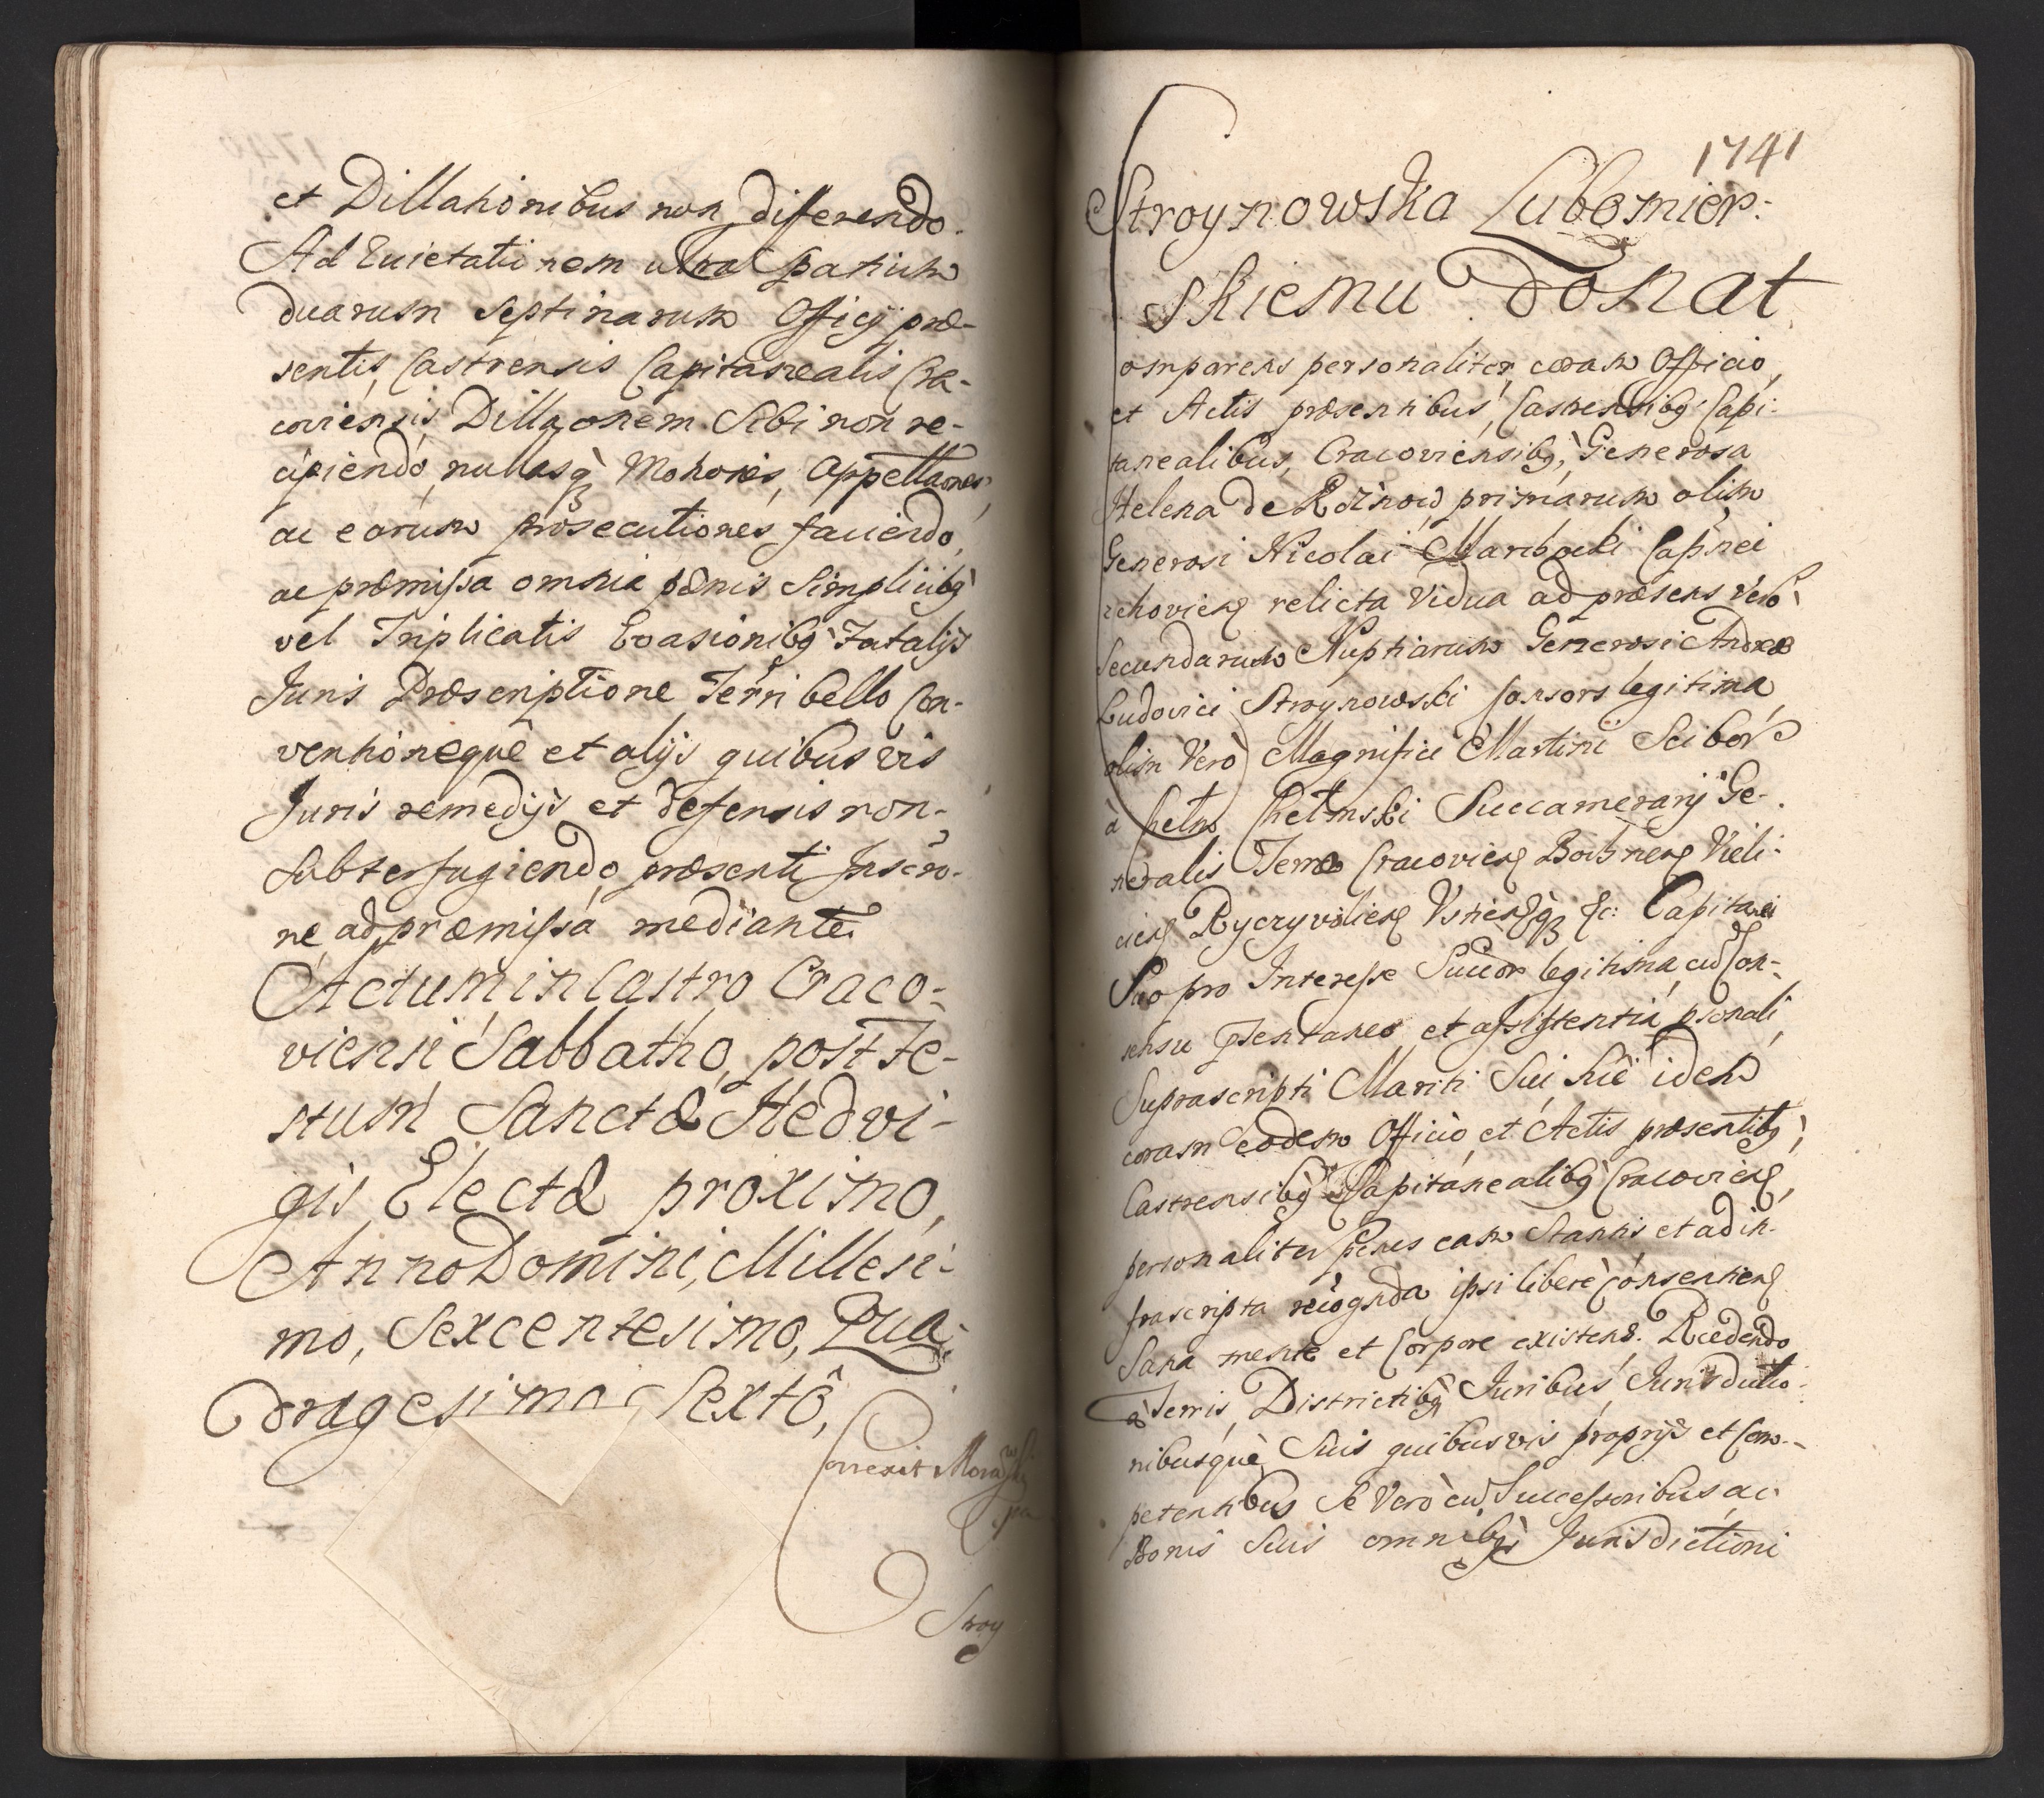 et Dillationibus non differendo.
Ad Evictatiionem ultra spatium
duarum septimarum Officij præ-
sentis, Castrensis Capitanealis Cra-
coviensis, Dillaonem Sibi non re-
cipiendo, nullasq̀ꝫ Motiones, Appellaones,
ac earum prosecutiones faciendo,
ac præmissa omnia pœnis Simplicibꝫ
vel Triplicatis Evasionibꝫ Fatalijs
Juris Præscriptione Terri bello Con-
ventioneque et alijs quibusvis
Juris remedijs et defensis non-
Subterfugiendo, præsenti Inscrō-
ne ad præmissa mediante.
Actum in Castro Craco-
viensi Sabbatho, post Fe-
stum Sanctæ Hedvi-
gis Electæ proximo,
Anno Domini, Millesi-
mo, Sexcentesimo, Qua-
dragesimo Sextô,
Correxit
Stroy
1741
Stroynowska Lubomier:
skiemu Donat
omparens personaliter coram Officio,
et Actis præsentibus, Castrensibꝫ Capi-
tanealibus, Cracoviensibꝫ, Generosa
Helena de primarum olim
Generosi Nicolai Capnei
relicta Vidua ad præsens Verò
Secundarum Nuptiarum Generosi Andreæ
Ludovici Stroynowski Consors legitima,
olim Verò Magnifici Martini Scibor
à Chełm Chełmski Succamerarij Ge-
neralis Terræ Cracovien Bochnen Vieli-
cien Rycryvolien Capitanei
pro Interesse Succōr legitima, cū Con-
sensu et assistentia, psonali,
Suprascripti Mariti Sui hic idem
coram eodem Officio, et Actis præsentibꝫ,
Castrensibꝫ Capitanealibꝫ Cracovien,
personaliter penes eam Stantis et ad in-
frascripta recognda ipsi liberè consentien
Sana mente et Corpore existens. Recedendo
à Terris, Districtibꝫ Juribus, Jurisdictio-
nibusquè Suis quibusvis proprijs et Com-
petentibus Se Verò cū Successoribus ac
Bonis Suis omnibꝫ Jurisdictioni